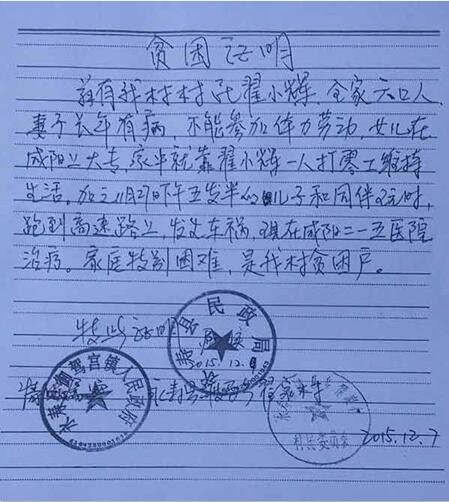 贫困证明
兹有我村村民翟小辉，全家六口人，
妻子长年有病，不能参加体力劳动，女儿在
咸阳上大专，家中就靠翟小辉一人打零工维持
生活。加之11月27日下午五点半的儿子和同伴玩时，
跑到高速路上，发生车祸，现在咸阳二一五医院
治疗。家庭特别困难，是我村贫困户。
特此证明
县民政局
2015.12.9
永寿县御驾宫镇人民政府
永寿县
村民委员会
2015.12.7